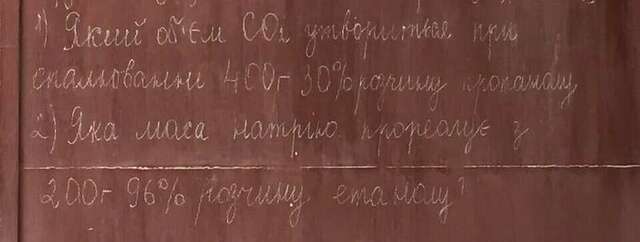 1) Який об'єм CO₂ утвориться при
спалюванні 400г 30% розчину пропанолу
2) Яка маса натрію прореагує з
200г 96% розчину етанолу?